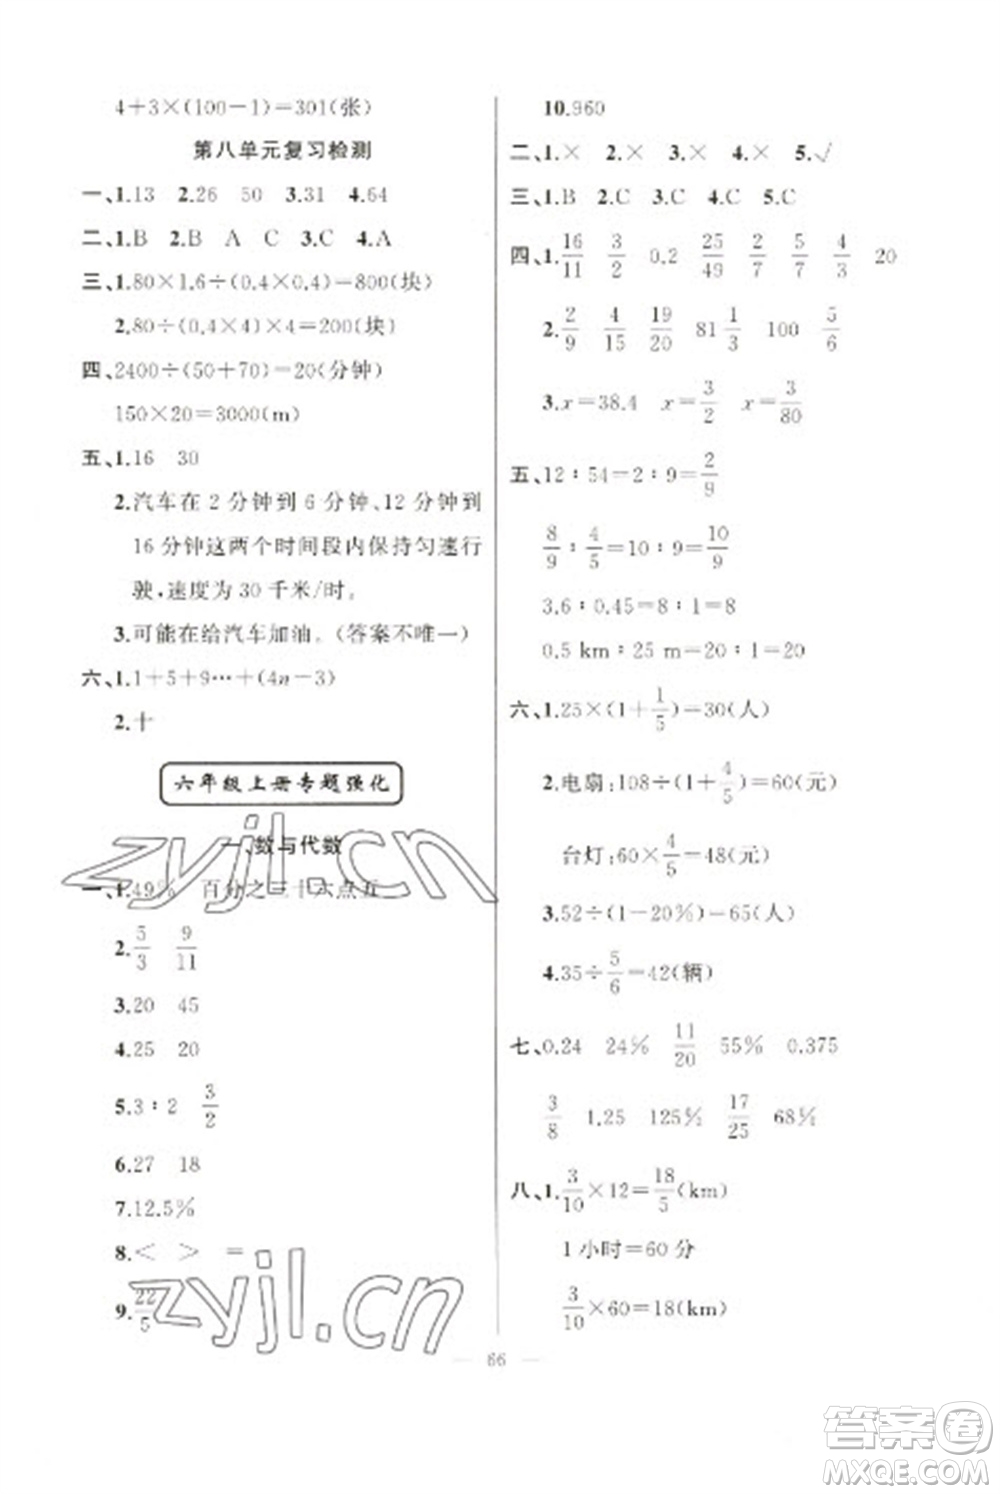 4+3×(100-1)=301(张)
第八单元复习检测
一、1.13 2.26 50 3.31 4.64
二、1.B 2.B A C 3.C 4.A
三、1.80×1.6÷(0.4×0.4)=800(块)
2.80÷(0.4×4)×4=200(块)
四、2400÷(50+70)=20(分钟)
150×20=3000(m)
五、1.16 30
2.汽车在 2 分钟到 6 分钟、12 分钟到
16 分钟这两个时间段内保持匀速行
驶,速度为 30 千米/时。
3.可能在给汽车加油。(答案不唯一)
六、1.1+5+9…+(4n-3)
2.十
六年级上册专题强化
一、数与代数
一、1.49% 百分之三十六点五
2.5/3 9/11
3.20 45
4.25 20
5.3∶2 3/2
6.27 18
7.12.5%
8.< > =
9.22/5
10.960
二、1.× 2.× 3.× 4.× 5.√
三、1.B 2.C 3.C 4.C 5.C
四、1.16/11 3/2 0.2 25/49 2/7 5/7 4/3 20
2.2/9 4/15 19/20 81 1/3 100 5/6
3.x=38.4 x=3/2 x=3/80
五、12∶54=2∶9=2/9
8/9∶4/5=10∶9=10/9
3.6∶0.45=8∶1=8
0.5 km∶25 m=20∶1=20
六、1.25×(1+1/5)=30(人)
2.电扇:108÷(1+4/5)=60(元)
台灯:60×4/5=48(元)
3.52÷(1-20%)=65(人)
4.35÷5/6=42(辆)
七、0.24 24% 11/20 55% 0.375
3/8 1.25 125% 17/25 68%
八、1.3/10×12=18/5(km)
1 小时=60 分
3/10×60=18(km)
66
zyjl.cn
zyjl.cn
答案卷
MXQE.COM